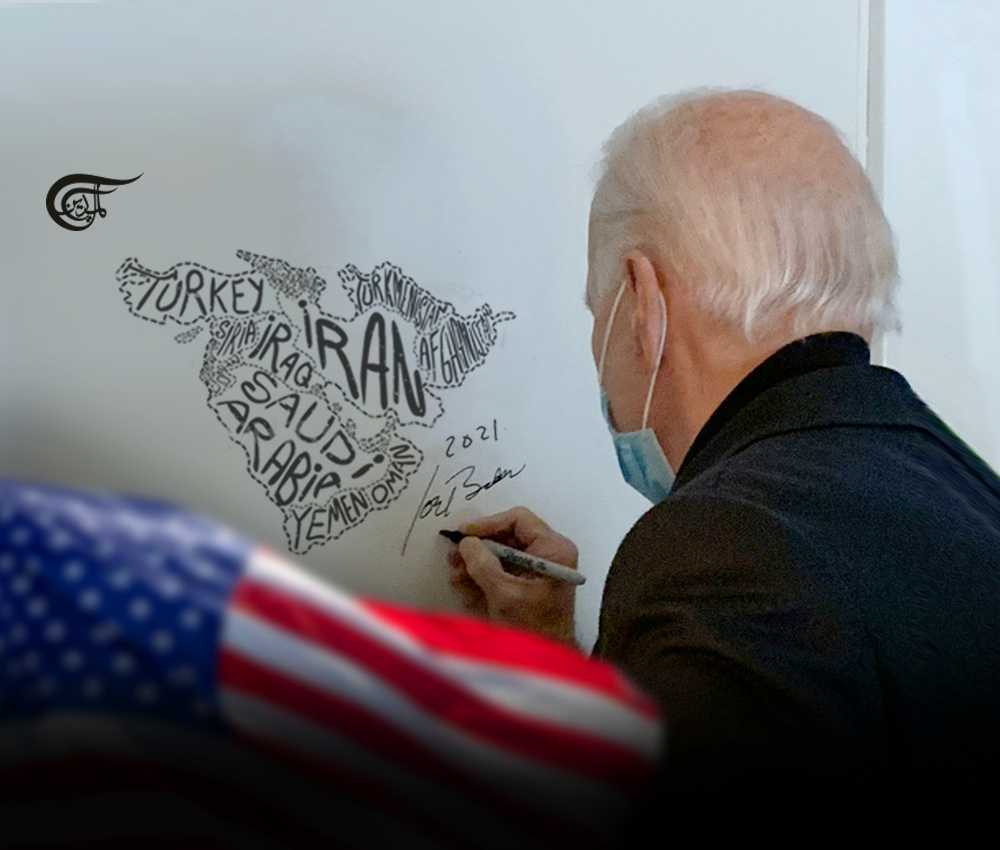 الميادين
TURKEY
TURKMENISTAN
SYRIA
IRAQ
iRAN
AFGHANISTAN
SAUDi
ARABiA
YEMEN
OMAN
2021
Joe Biden